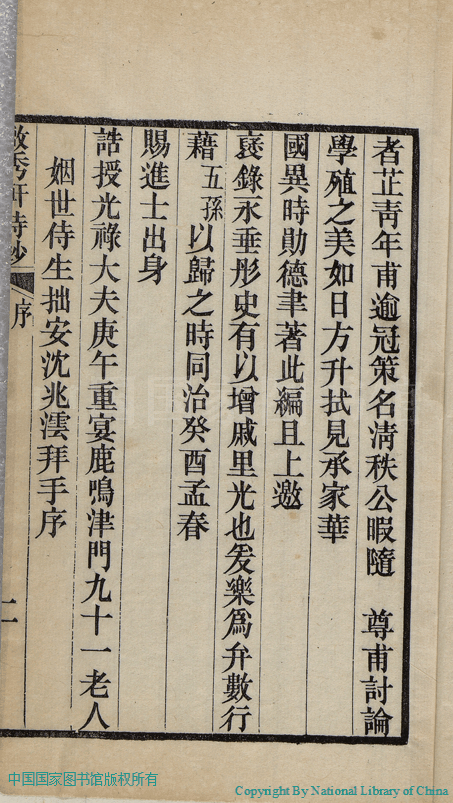 者芷靑年甫逾冠策名淸秩公暇隨　尊甫討論
學殖之美如日方升拭見承家華
國異時勛德聿著此編且上邀
襃錄永垂彤史有以增戚里光也爰樂爲弁數行
藉五孫以歸之時同治癸酉孟春
賜進士出身
誥授光祿大夫庚午重宴鹿鳴津門九十一老人
姻世侍生拙安沈兆澐拜手序
秀軒詩鈔
序
二
中国国家图书馆版权所有
Copyright By National Library of China